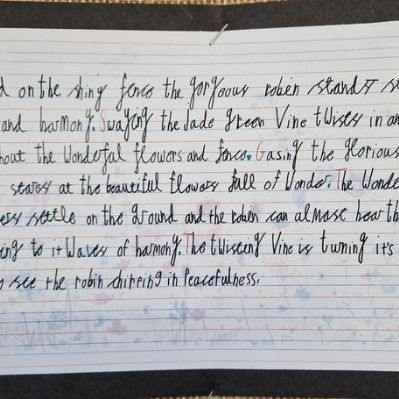 d on the shing fence the gorgeous robin stands s
and harmony. Swayeng the Jade green Vine twises in an
hout the Wonderful flowers and fence. Gasing the glorious
stares at the beautiful flowers full of Wonder. The Wonde
ess settle on the ground and the robin can almose hear th
ing to it Waves of harmony. The twisceng Vine is turning it's
o see the robin chirping in Peacefulness.